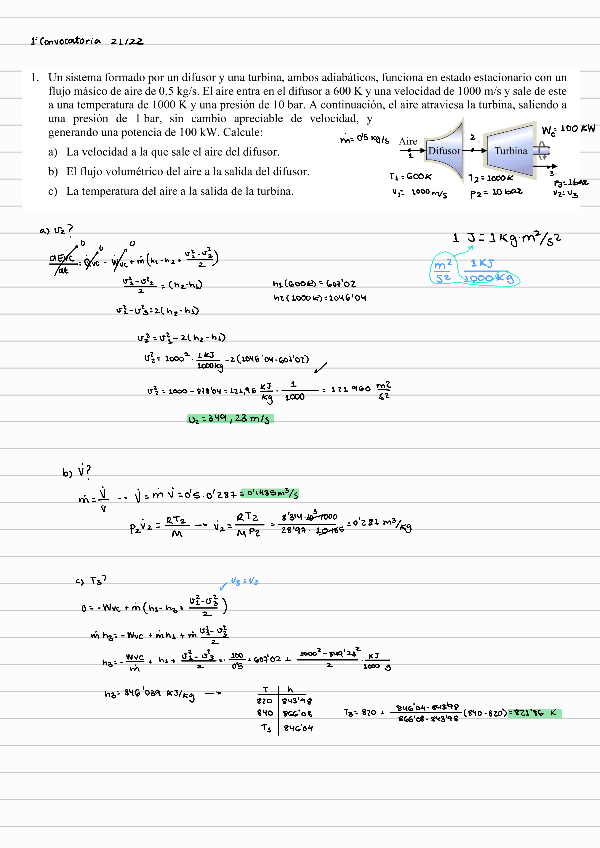 1ª Convocatoria 21/22
1. Un sistema formado por un difusor y una turbina, ambos adiabáticos, funciona en estado estacionario con un
flujo másico de aire de 0,5 kg/s. El aire entra en el difusor a 600 K y una velocidad de 1000 m/s y sale de este
a una temperatura de 1000 K y una presión de 10 bar. A continuación, el aire atraviesa la turbina, saliendo a
una presión de 1 bar, sin cambio apreciable de velocidad, y
generando una potencia de 100 kW. Calcule:
a) La velocidad a la que sale el aire del difusor.
b) El flujo volumétrico del aire a la salida del difusor.
c) La temperatura del aire a la salida de la turbina.
ṁ = 0'5 kg/s
Aire
1
Difusor
2
Turbina
Ẇc = 100 KW
3
T1 = 600K
v1 = 1000 m/s
T2 = 1000K
P2 = 10 bar
P3 = 1 bar
v2 = v3
a) v2?
dEvc/dt = Q̇vc - Ẇvc + ṁ (h1 - h2 + (v1² - v2²)/2)
0 0 0
(v1² - v2²)/2 = (h2 - h1)
h1 (600K) = 607'02
h2 (1000K) = 1046'04
v1² - v2² = 2(h2 - h1)
v2² = v1² - 2(h2 - h1)
v2² = 1000² · 1KJ/1000kg - 2(1046'04 - 607'02)
v2² = 1000 - 878'04 = 121,96 KJ/kg · 1/1000 = 121960 m²/s²
v2 = 349,23 m/s
1 J = 1 kg·m²/s²
m²/s² 1KJ/1000kg
b) V̇?
ṁ = V̇/v → V̇ = ṁ v = 0'5 · 0'287 = 0'1435 m³/s
P2 v2 = RT2/M → v2 = RT2/(M P2) = (8'314·10³·1000)/(28'97 · 10·10⁵) = 0'287 m³/kg
c) T3?
v3 = v2
0 = -Wvc + ṁ (h1 - h3 + (v1² - v3²)/2)
ṁ h3 = -Wvc + ṁ h1 + ṁ (v1² - v3²)/2
h3 = -Wvc/ṁ + h1 + (v1² - v3²)/2 = -100/0'5 + 607'02 + (1000² - 349'23²)/2 · KJ/1000 g
h3 = 846'039 KJ/kg →
T h
820 843'98
840 866'08
T3 846'04
T3 = 820 + (846'04 - 843'98)/(866'08 - 843'98) (840 - 820) = 821'86 K